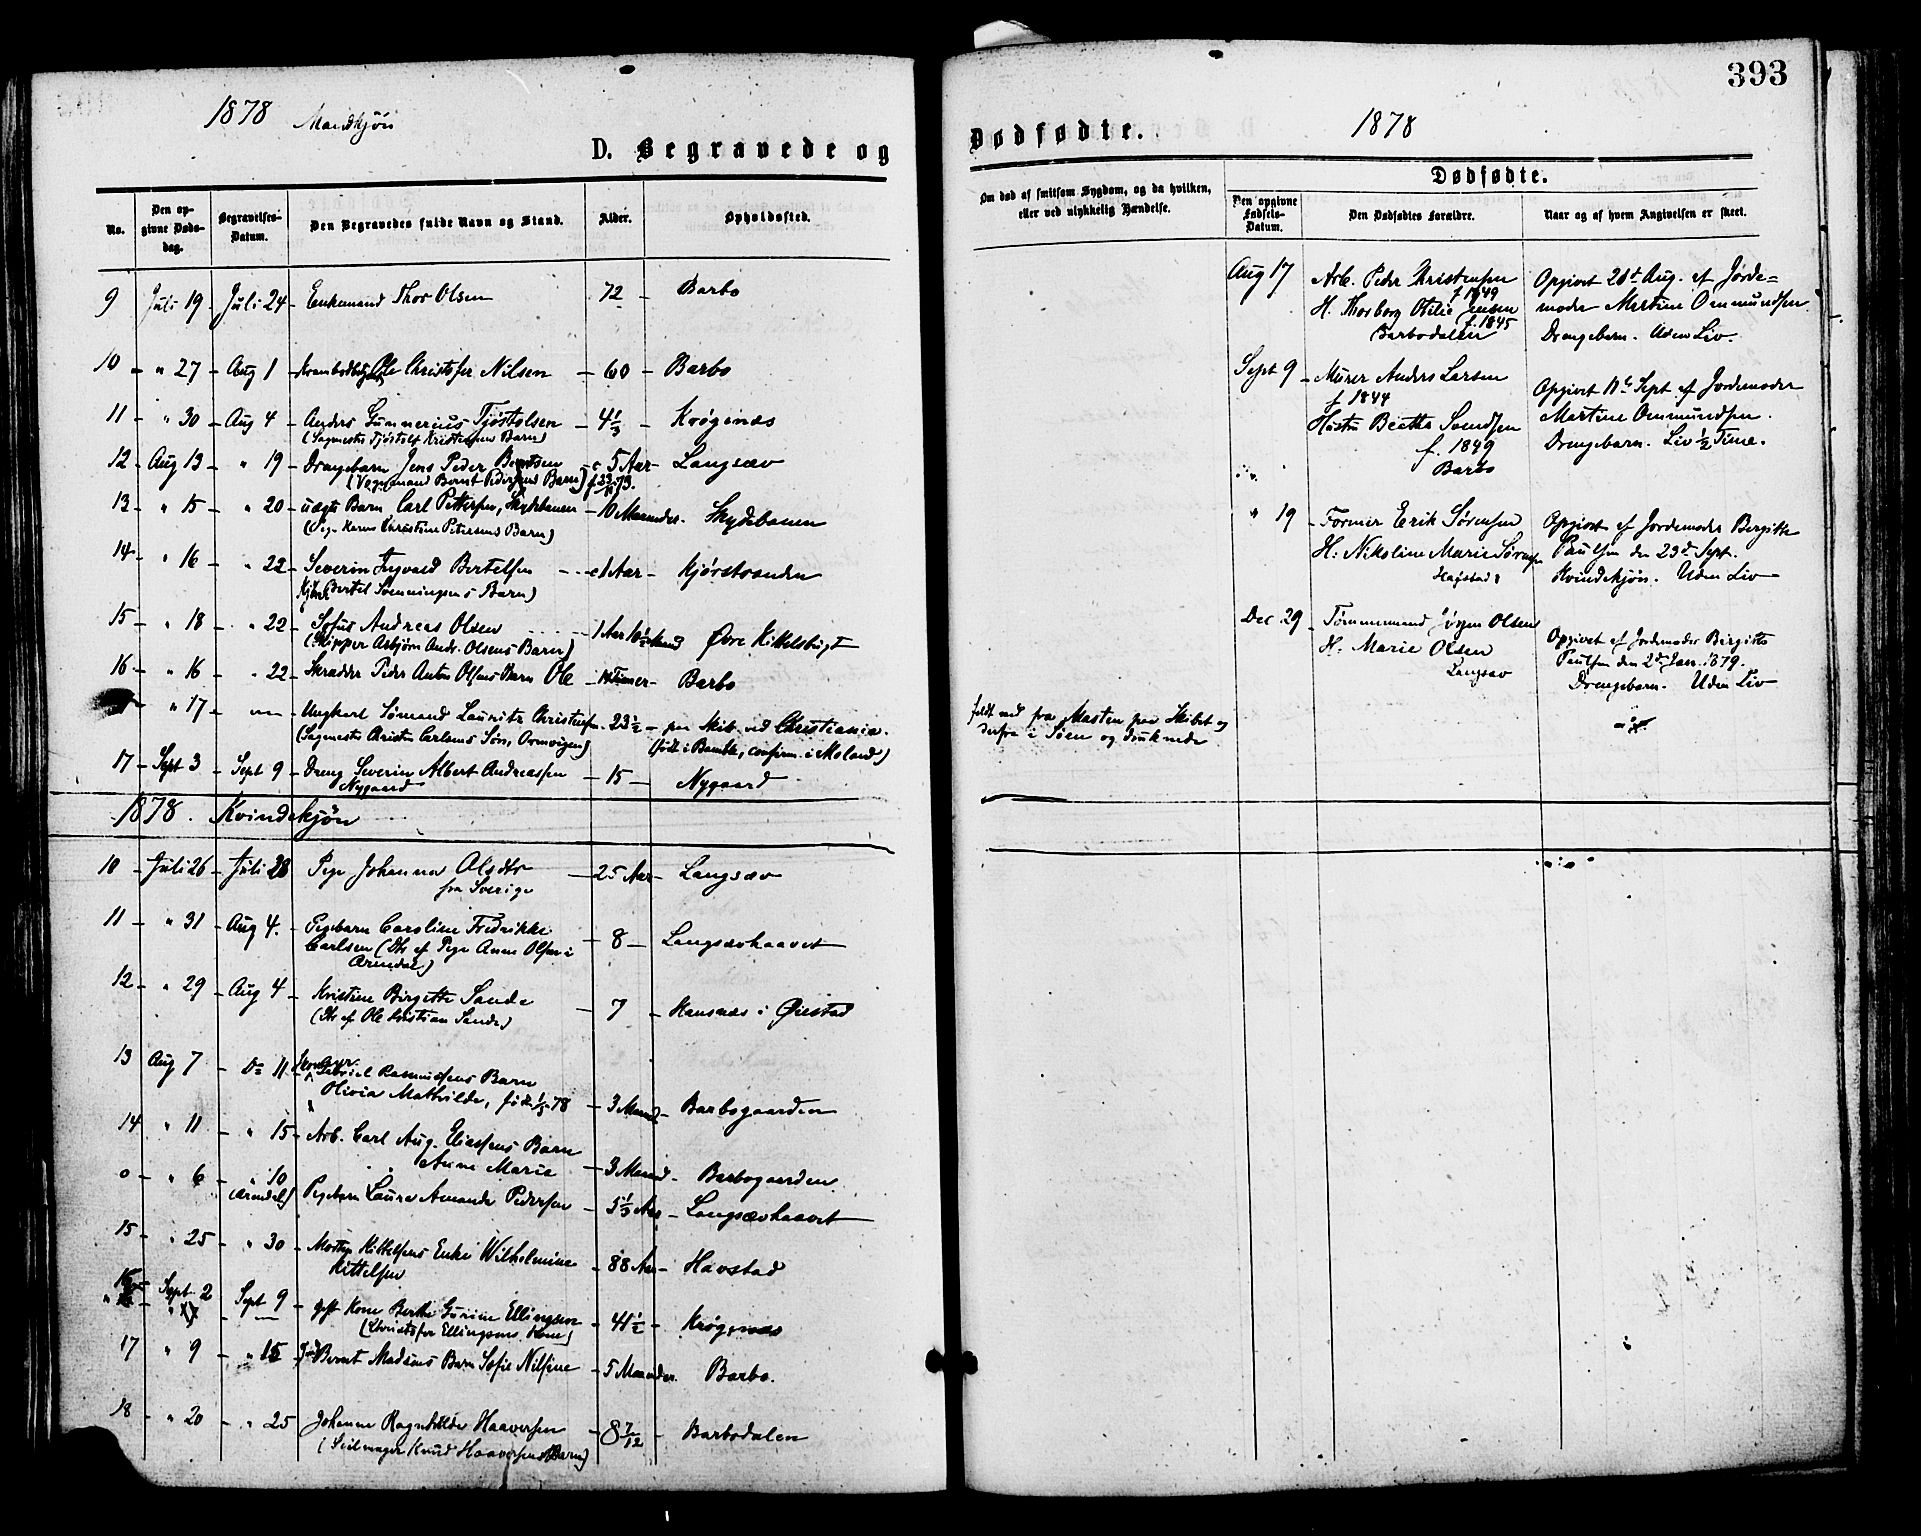 393
1878 Mandkjön
D. Begravede og
No.
Den opgivne Dødsdag.
Begravelses-Datum.
Den Begravedes fulde Navn og Stand.
Alder.
Opholdssted.
9 Juli 19 Juli 24 Enkemand Thor Olsen 72 Barbo
10 " 27 Aug 1 Ole Christofer Nilsen 60 Barbo
11 " 30 Aug 4 Anders Gunnerius Tjøstolsen 4 1/3 Krøgenæs
(Sagmester Tjøstolf Kristensens Barn)
12 Aug 13 " 19 Drengebarn Jens Peder Berntsen c 5 Aar Langsæv
(Vegtmand Bernt Pedersens Barn)
13 " 15 " 20 uægte Barn Carl Pettersen, Skydebanen 10 Maaneder Skydebanen
(Pige Karen Christine Petersens Barn)
14 " 16 " 22 Severin Ingvald Bertelsen c 1 Aar Kjørstranden
(Bertel Sönningsens Barn)
15 " 18 " 22 Sofus Andreas Olsen 1 Aar Øvre Kittelsbugt
(Skipper Asbjørn Andr. Olsens Barn)
16 " 16 " 22 Skrædder Peder Anton Olsens Barn Ole Timer Barbo
" 17 Ungkarl Sømand Lauritz Christensen 23 1/2 paa Skib ved Christiania.
(Sagmester Christen Carlsens Søn, Ormvigen) (født i Bamble, confirm. i Moland)
17 Sept 3 Sept 9 Dreng Severin Albert Andreassen 15 Nygaard
Nygaard
1878. Kvindekjön
10 Juli 26 Juli 28 Pige Johanna Olsdtr 25 Aar Langsæv
fra Sverige
11 " 31 Aug 4. Pigebarn Caroline Fredrikke
Carlsen (Dtr af Pige Anne Olsen i 8 Langsævhaavet
Arendal)
12 " 29 Aug 4 Kristine Birgitte Sande 7 Hansnæs i Øiestad
(Dtr af Ole Kristian Sande)
13 Aug 7 Do 11 Gabriel Rasmussens Barn
Olivia Mathilde, født 78 3 Maaned Barbogaarden
14 " 11 " 15 Arb. Carl Aug. Eliassens Barn
Anne Marie 3 Maaned Barbogaarden
0 " 6 " 10 (Arendal) Pigebarn Laura Amanda Pedersen Aar Langsævhaavet
15 " 25 " 30 Morten Kittelsens Enke Wilhelmine
Kittelsen 88 Aar Havstad
16 Sept 2 Sept 9 gift Kone Berthe Gurine Ellingsen 41 1/2 Krøgenæs
(Christofer Ellingsens Kone)
17 " 9 " 15 Bernt Madsens Barn Sofie Nilsine 5 Maaneder Barbo.
18 " 20 " 25 Johanne Ragnhilde Haaversen 8 7/12 Barbodalen
(Seilmager Knud Haaversens Barn)
Dødfødte.
1878
Om død af smitsom Sygdom, og da hvilken, eller ved ulykkelig Hændelse.
Dødfødte.
Den opgivne Fødsels-Datum.
Den Dødfødtes Forældre.
Naar og af hvem Angivelsen er skeet.
Aug 17 Arb. Peder Christensen Opgivet 20de Aug. af Jorde-
f 1849
H. Thorborg Otilie Jensen moder Martine Ommundsen.
f. 1845
Barbodalen Drengebarn. Uden Liv.
Sept 9 Murer Anders Larsen Opgivet 11te Sept. af Jordemoder
f 1844 Martine Ommundsen.
Hustru Beathe Svendsen Drengebarn. Liv 1/2 Time.
f. 1849
Barbo
" 19 Former Erik Sørensen Opgivet af Jordemoder Bergitte
H: Nikoline Marie Sørensen Paulsen den 23de Sept.
Kvindekjøn. Uden Liv
Dec. 29 Tømmermand Jörgen Olsen Opgivet af Jordemoder Birgitte
H. Marie Olsen Paulsen den 2den Jan. 1879.
Langsæv Drengebarn. Uden Liv
faldt ned fra Masten paa Skibet og
derfra i Søen og druknede